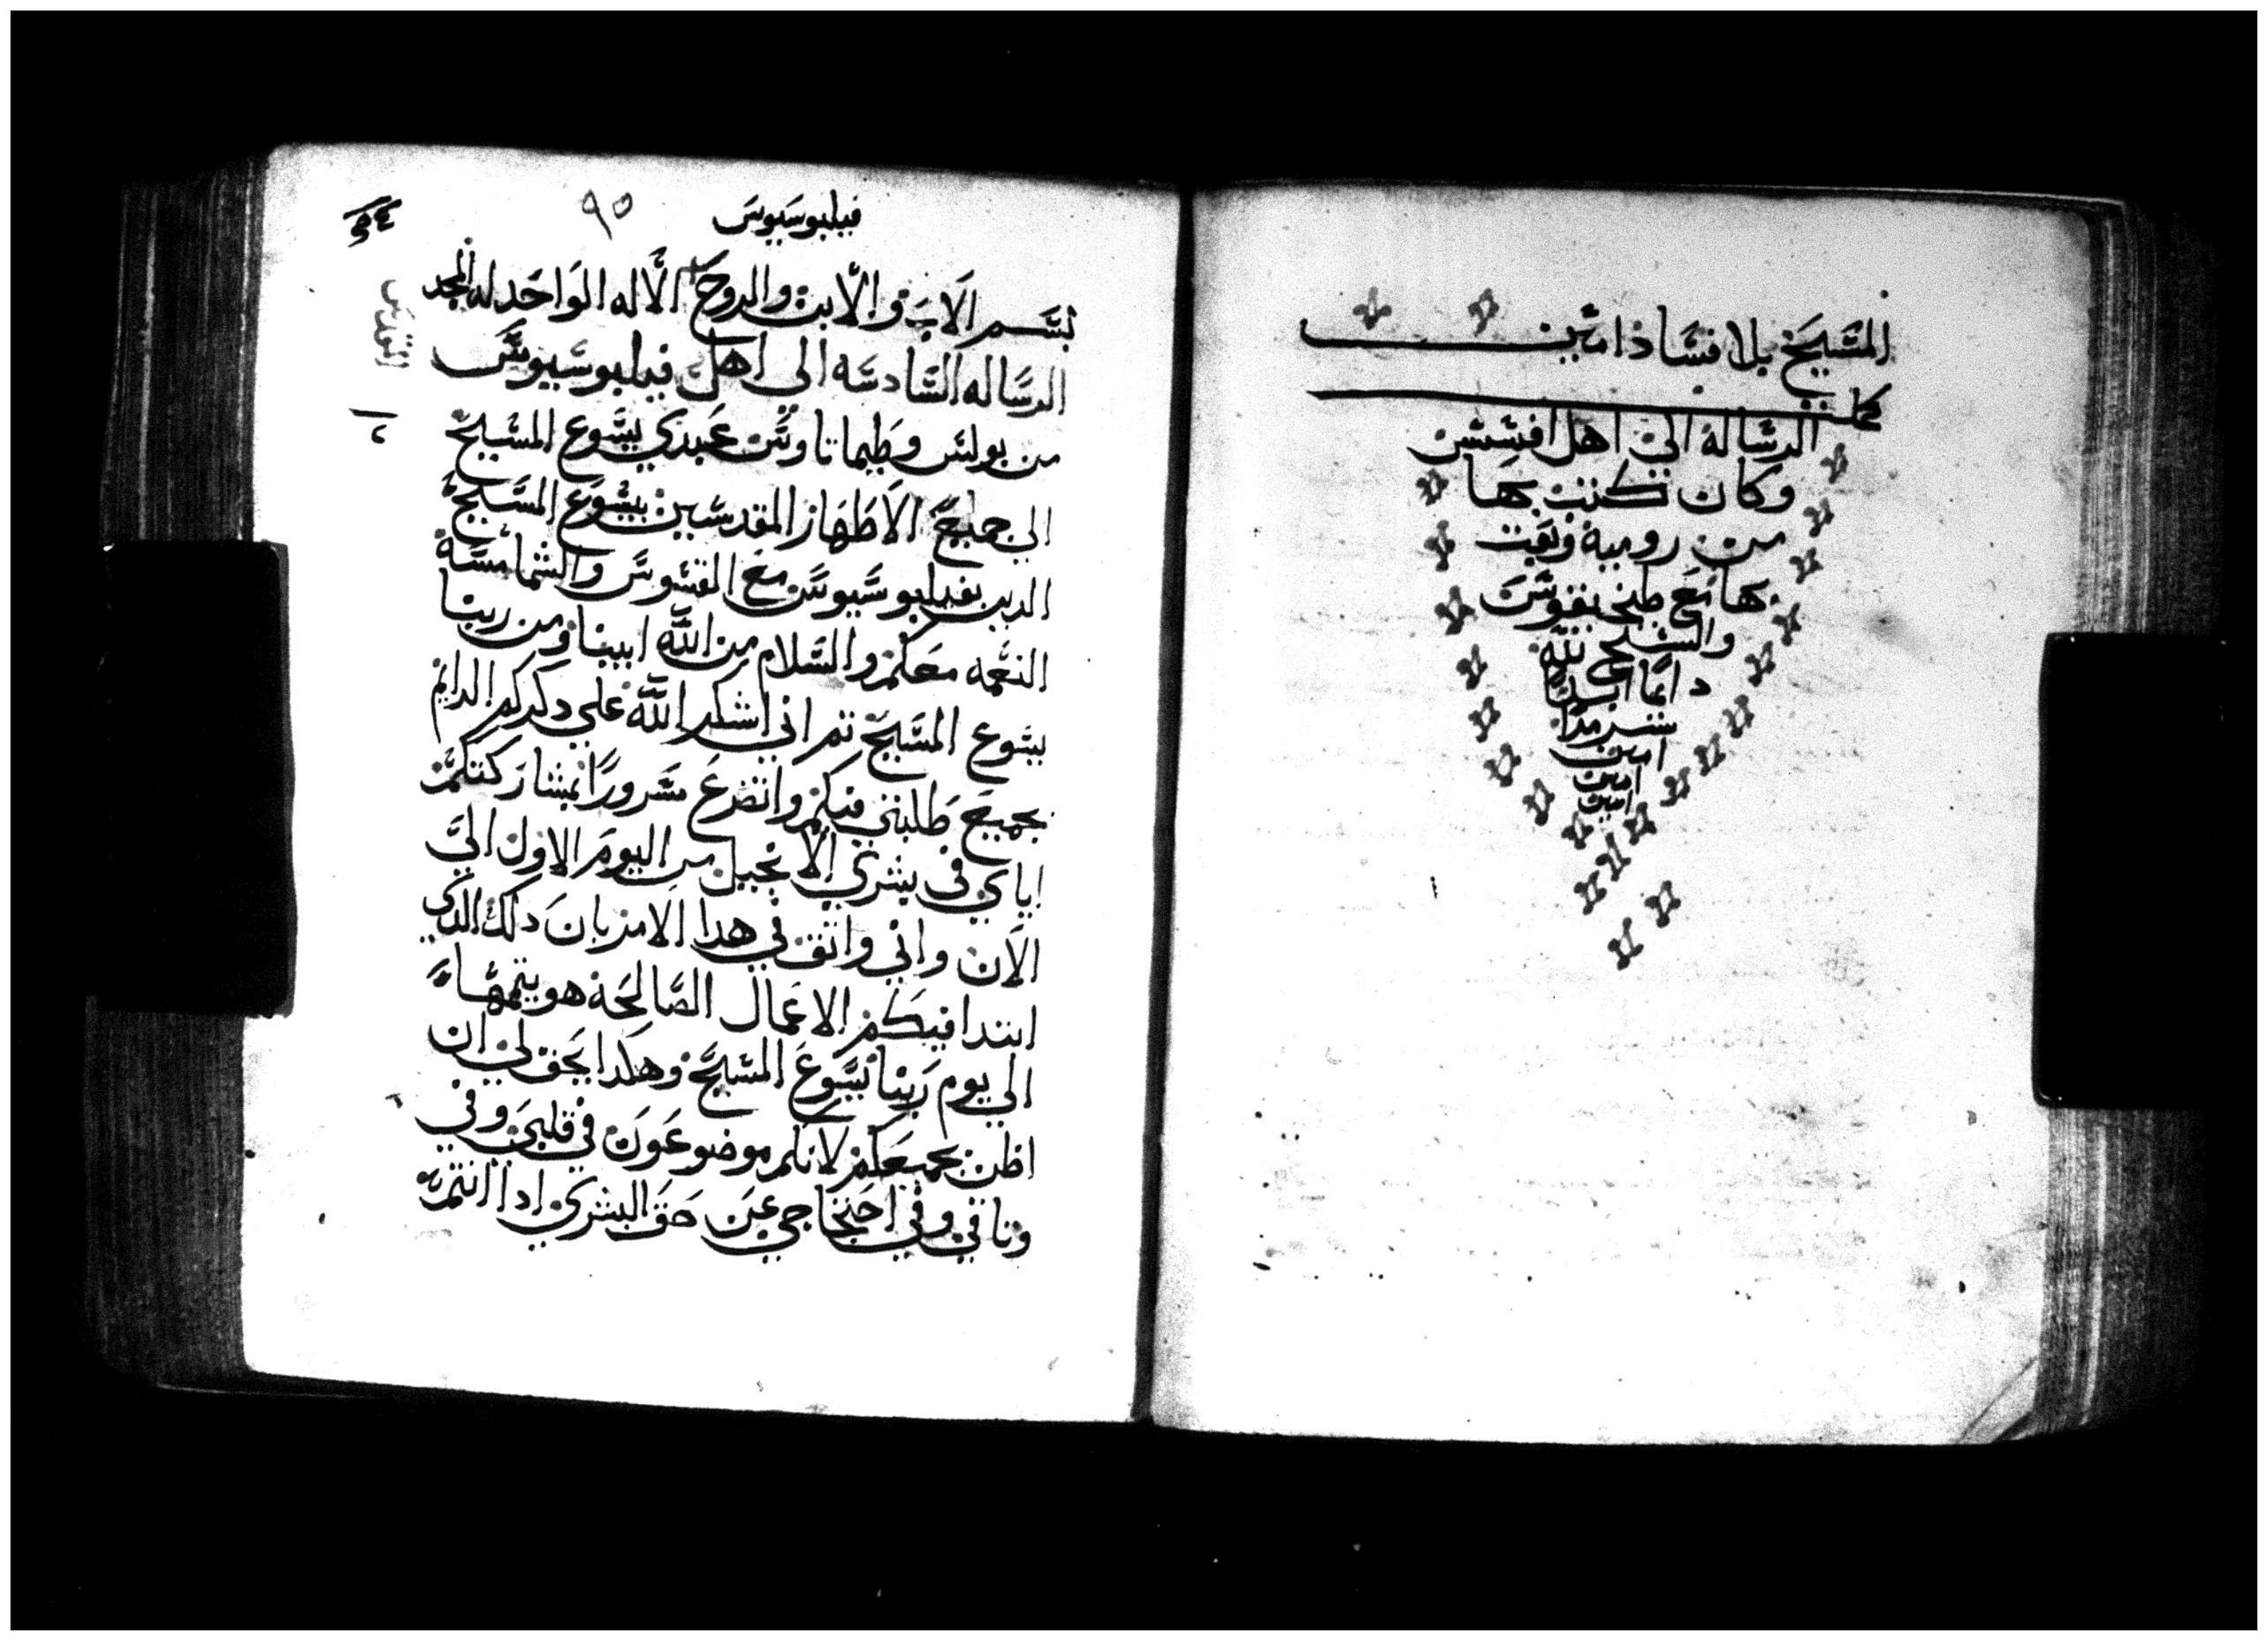 المسيح بلا فساد امين
كملت
الرساله الي اهل افسس
وكان كتب بها
من روميه وبعت
بها مع طخيقوس
والسبح لله
دايما ابدا
سرمدا
امين
امين
امين
فيلبوسيوس
٩٥
بسم الاب والابن والروح الاله الواحد له المجد
الرساله السادسه الي اهل فيلبوسيوس
من بولس وطيماتاوس عبدي يسوع المسيح
الي جميع الاطهار المقدسين بيسوع المسيح
الدين بفيلبوسيوس مع القسوس والشمامسه
النعمه معكم والسلام من الله ابينا ومن ربنا
يسوع المسيح تم اني اشكر الله علي دكركم الدايم
بجميع طلبتي فيكم واتضرع مسرورا بمشاركتكم
اياي في بشري الانجيل من اليوم الاول الي
الان واني واتق في هدا الامر بان دلك الدي
ابتدا فيكم الاعمال الصالحه هو يتمها
الي يوم ربنا يسوع المسيح وهكدا يحق لي ان
اظن بجميعكم لانكم موضوعون في قلبي وفي
وتاقي وفي احتجاجي عن حق البشري ادا انتم